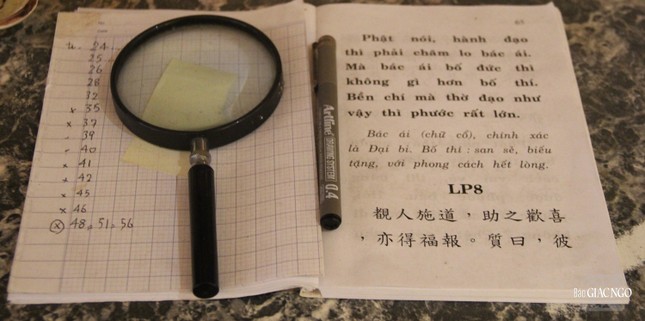 u. 24
25
26
28
32
x 35
x 37
- 39
- 40
x 41
x 42
x 45
x 46
ⓧ 48. 51. 56
Artline DRAWING SYSTEM 0.4
65
Phật nói, hành đạo
thì phải chăm lo bác ái.
Mà bác ái bố đức thì
không gì hơn bố thí.
Bền chí mà thờ đạo như
vậy thì phước rất lớn.
Bác ái (chữ cổ), chính xác
là Đại bi. Bố thí : san sẻ, biếu
tặng, với phong cách hết lòng.
LP8
覩人施道，助之歡喜
，亦得福報。質曰，彼
Báo GIÁC NGỘ